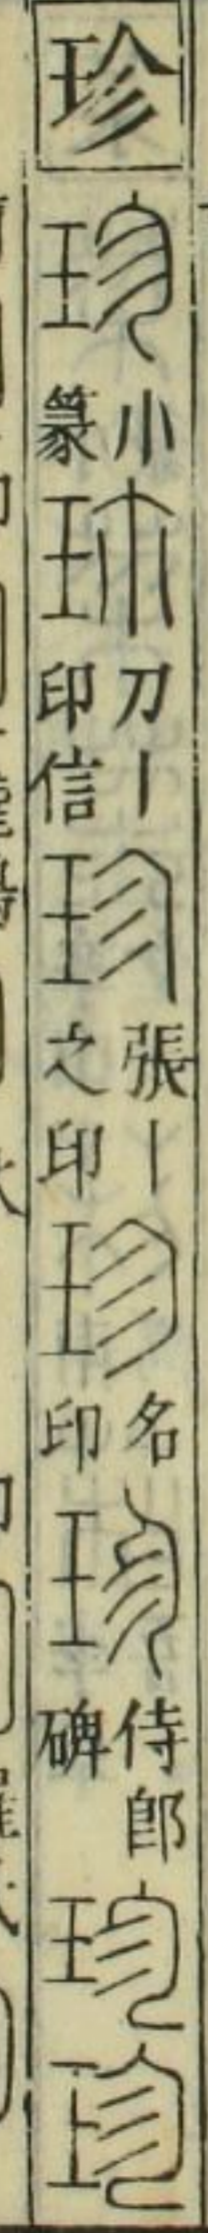 珍
珍 小篆
珍 刀丨印信
珍 張丨之印
珍 名印
珍 侍郎碑
珍
珍